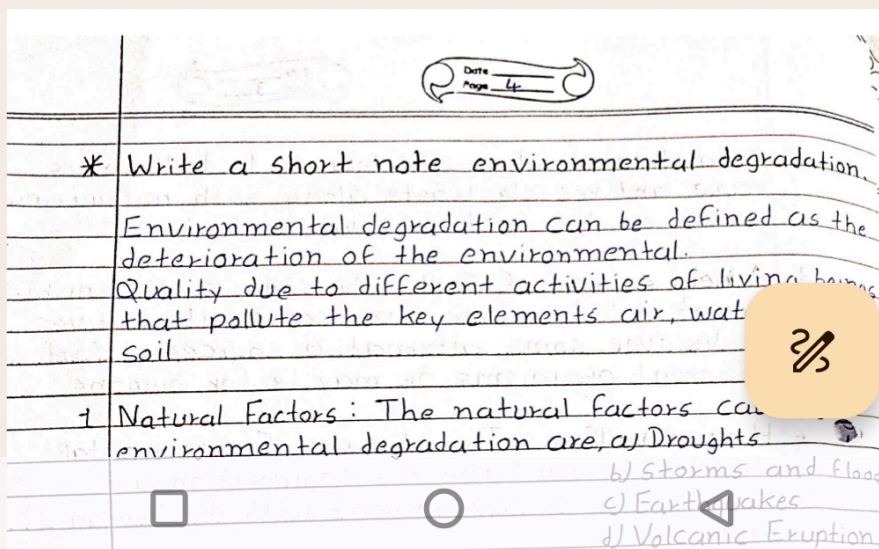 Date
Page 4
* Write a short note environmental degradation.
Environmental degradation can be defined as the
deterioration of the environmental.
Quality due to different activities of living beings
that pollute the key elements air,
soil.
1 Natural Factors : The natural factors
environmental degradation are, a) Droughts
b) Storms and
c) Earthquakes
d) Volcanic Eruption